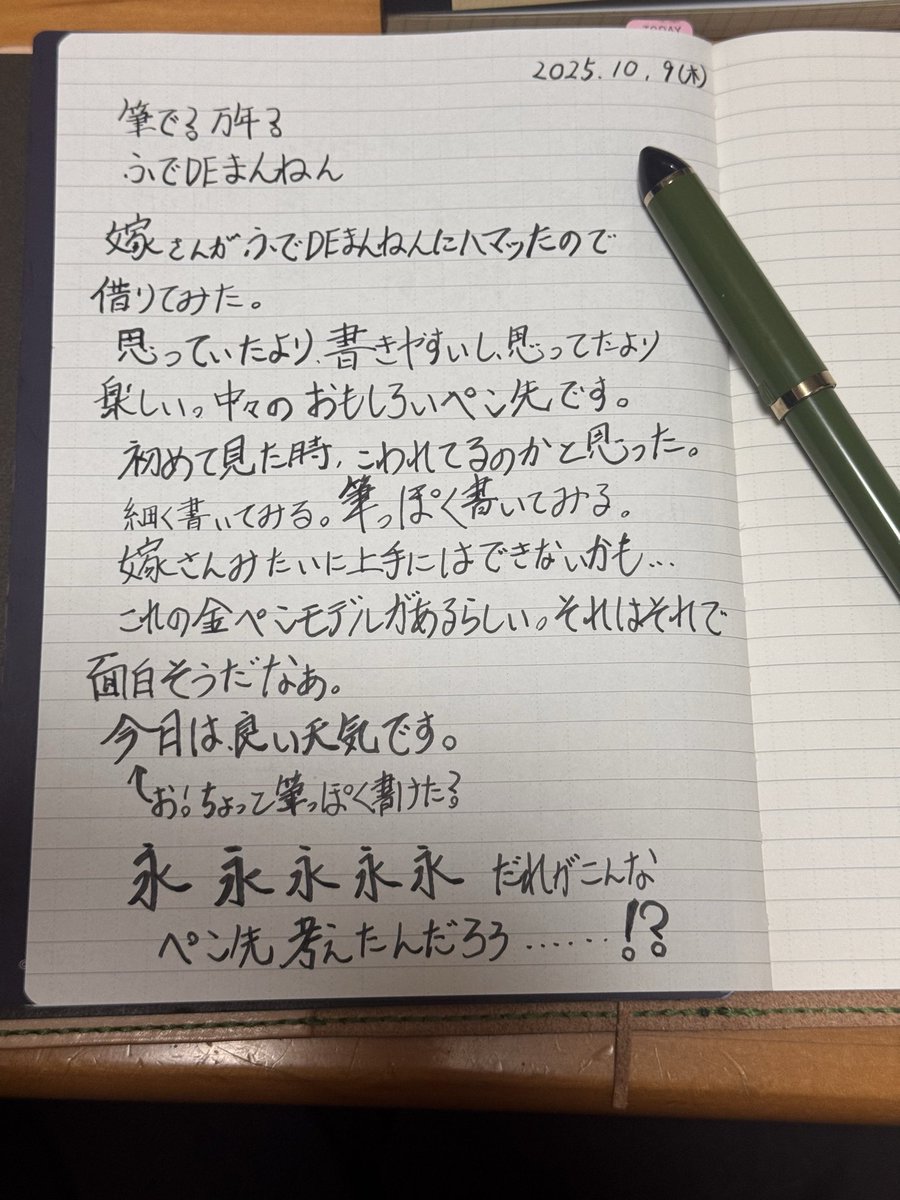 TODAY
2025.10.9(木)
筆でる万年る
ふでDEまんねん
嫁さんがふでDEまんねんにハマッたので
借りてみた。
思っていたより、書きやすいし、思ってたより
楽しいっ中々のおもしろいペン先です。
初めて見た時、こわれてるのかと思った。
細く書いてみる。筆っぽく書いてみる。
嫁さんみたいに上手にはできないかも…
これの金ペンモデルがあるらしい。それはそれで
面白そうだなぁ。
今日は、良い天気です。
お!ちょっと筆っぽく書けたる
永 永 永 永 永 だれがこんな
ペン先考えたんだろう……!?